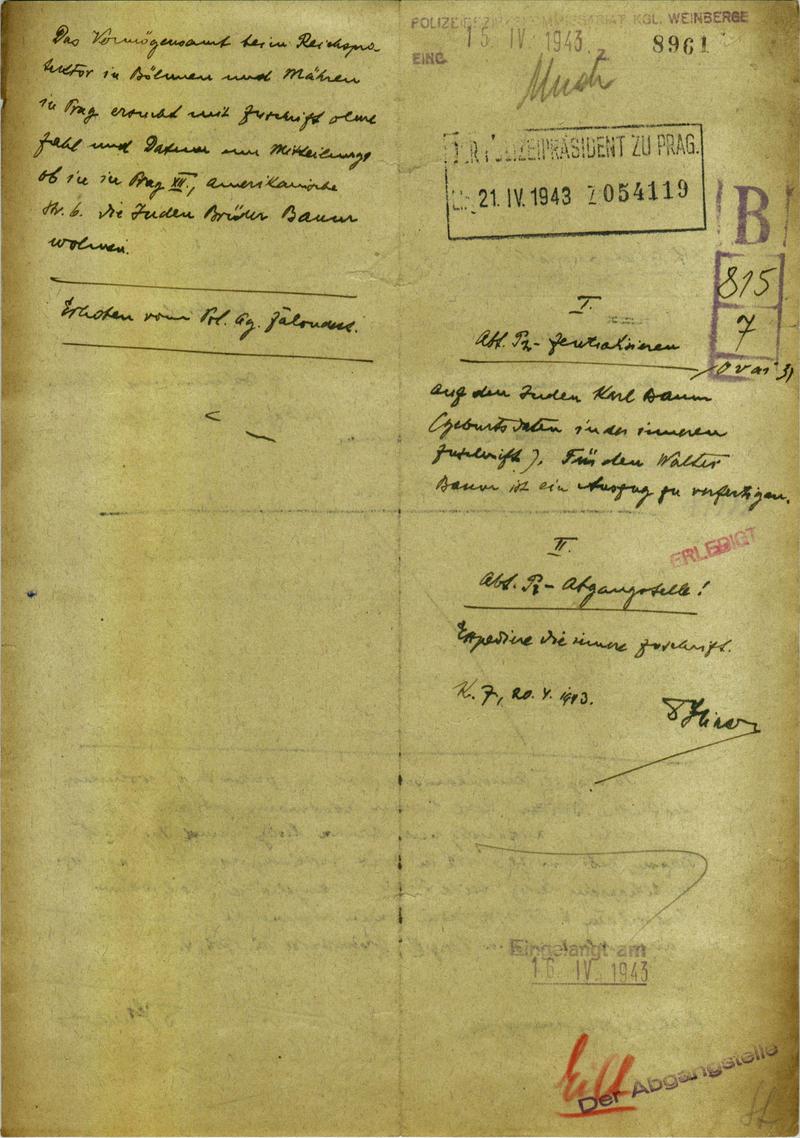 Das Vermögensamt beim Reichspro
tektor in Böhmen und Mähren
in Prag ersucht mit Zuschrift ohne
Zahl und Datum um Mitteilung,
ob sie in Prag XII., amerikanische
Str. 6. die Juden Brüder Baum
wohnen.
Erhoben vom Pol. Ag.
POLIZEIBEZIRKSKOMMISSARIAT KGL. WEINBERGE
15. IV. 1943.
EING.
8961
DER POLIZEIPRÄSIDENT ZU PRAG.
21. IV. 1943 Z 054119
B
815
7
I.
Abt. Pr - Zentralisieren
auf den Juden Karl Baum
(Geburtsdaten in der inneren
Zuschrift). Für den Walter
Baum ist ein Auszug zu verfertigen.
ERLEDIGT
II.
Abt. Pr - Abgangstelle!
Expediere die innere Zuschrift.
K. 7, 20. 4. 1943.
Eingelangt am
16. IV. 1943
Eilt
Der Abgangstelle